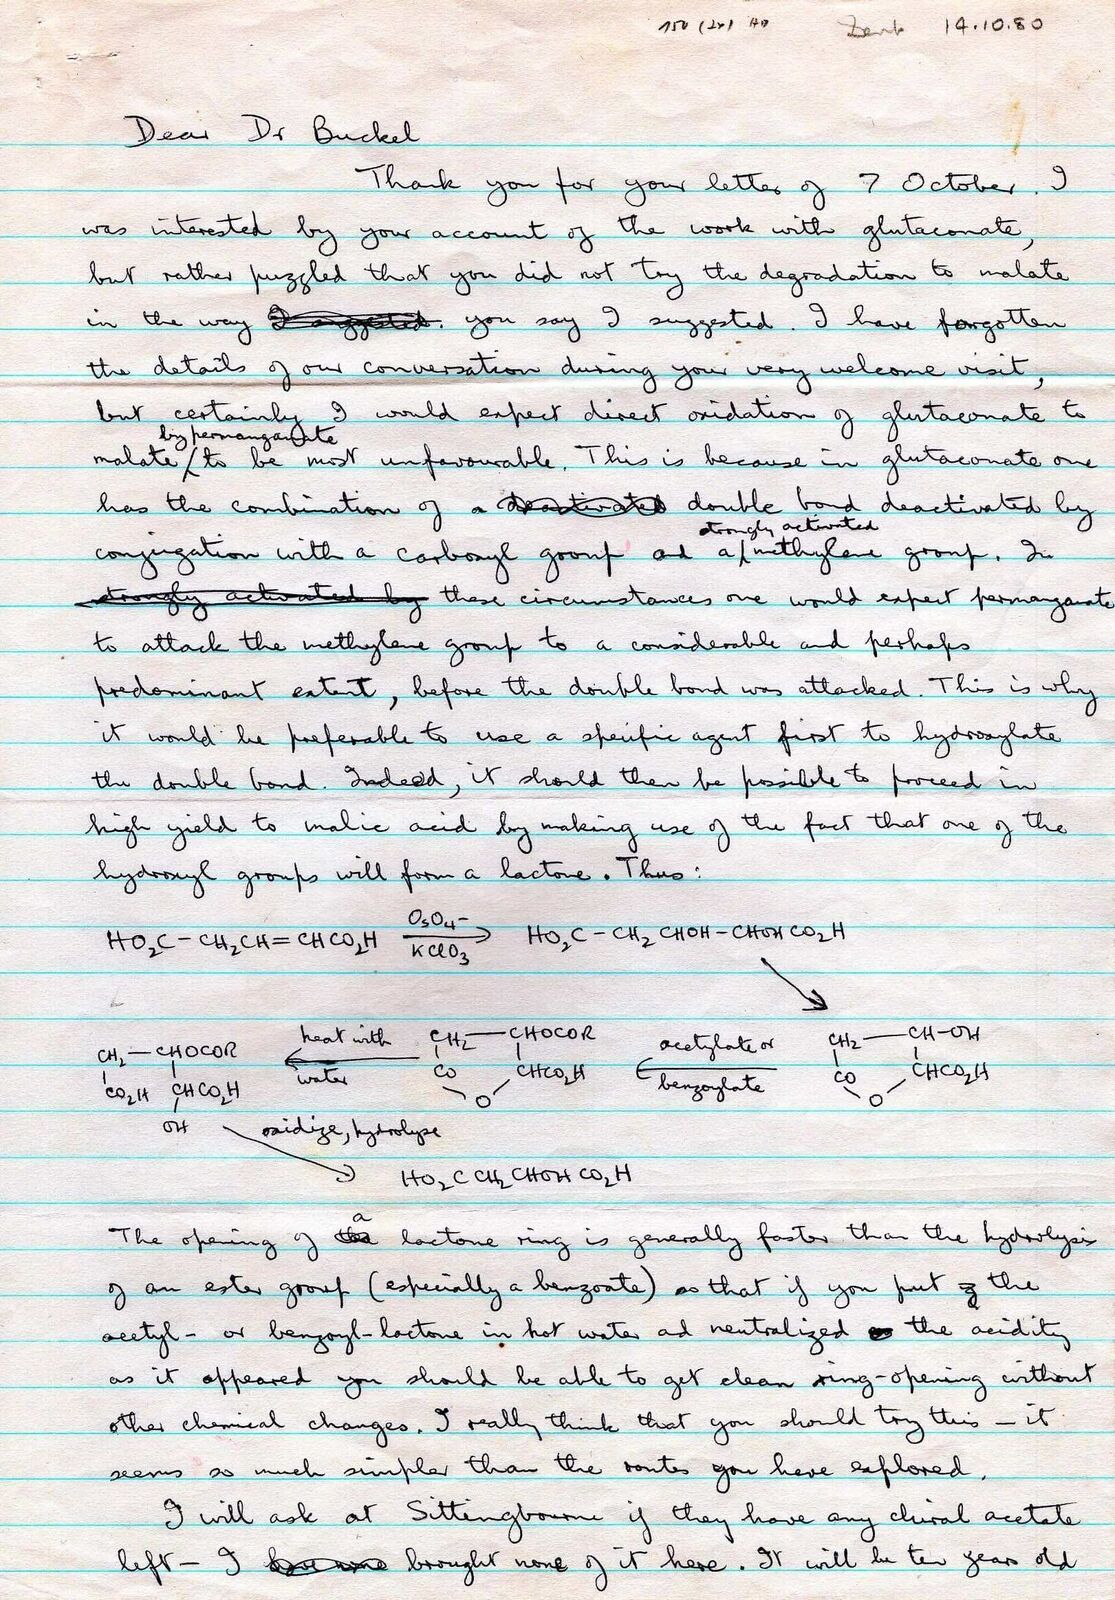 150 (2x) HO Zenk 14.10.80
Dear Dr Buckel
Thank you for your letter of 7 October. I
was interested by your account of the work with glutaconate,
but rather puzzled that you did not try the degradation to malate
in the way I suggested. you say I suggested. I have forgotten
the details of our conversation during your very welcome visit,
but certainly I would expect direct oxidation of glutaconate to
by permanganate
malate / to be most unfavourable. This is because in glutaconate one
has the combination of a deactivated double bond deactivated by
strongly activated
conjugation with a carboxyl group and a / methylene group. In
strongly activated by these circumstances one would expect permanganate
to attack the methylene group to a considerable and perhaps
predominant extent, before the double bond was attacked. This is why
it would be preferable to use a specific agent first to hydroxylate
the double bond. Indeed, it should then be possible to proceed in
high yield to malic acid by making use of the fact that one of the
hydroxyl groups will form a lactone. Thus:
HO₂C-CH₂CH=CHCO₂H OsO₄- KClO₃ HO₂C-CH₂CHOH-CHOHCO₂H
CH₂-CHOCOR heat with CH₂-CHOCOR acetylate or CH₂-CH-OH
CO₂H CHCO₂H water CO CHCO₂H benzoylate CO CHCO₂H
OH O O
oxidize, hydrolyse
HO₂CCH₂CHOHCO₂H
a
The opening of lactone ring is generally faster than the hydrolysis
of an ester group (especially a benzoate) so that if you put the
acetyl- or benzoyl-lactone in hot water and neutralized the acidity
as it appeared you should be able to get clean ring-opening without
other chemical changes. I really think that you should try this - it
seems so much simpler than the routes you have explored.
I will ask at Sittingbourne if they have any chiral acetate
left - I brought none of it here. It will be ten years old